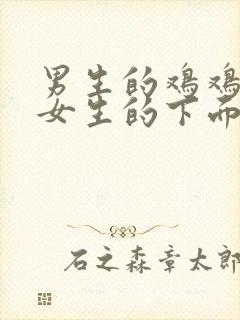 男生的鸡鸡
女生的下面
石之森章太郎